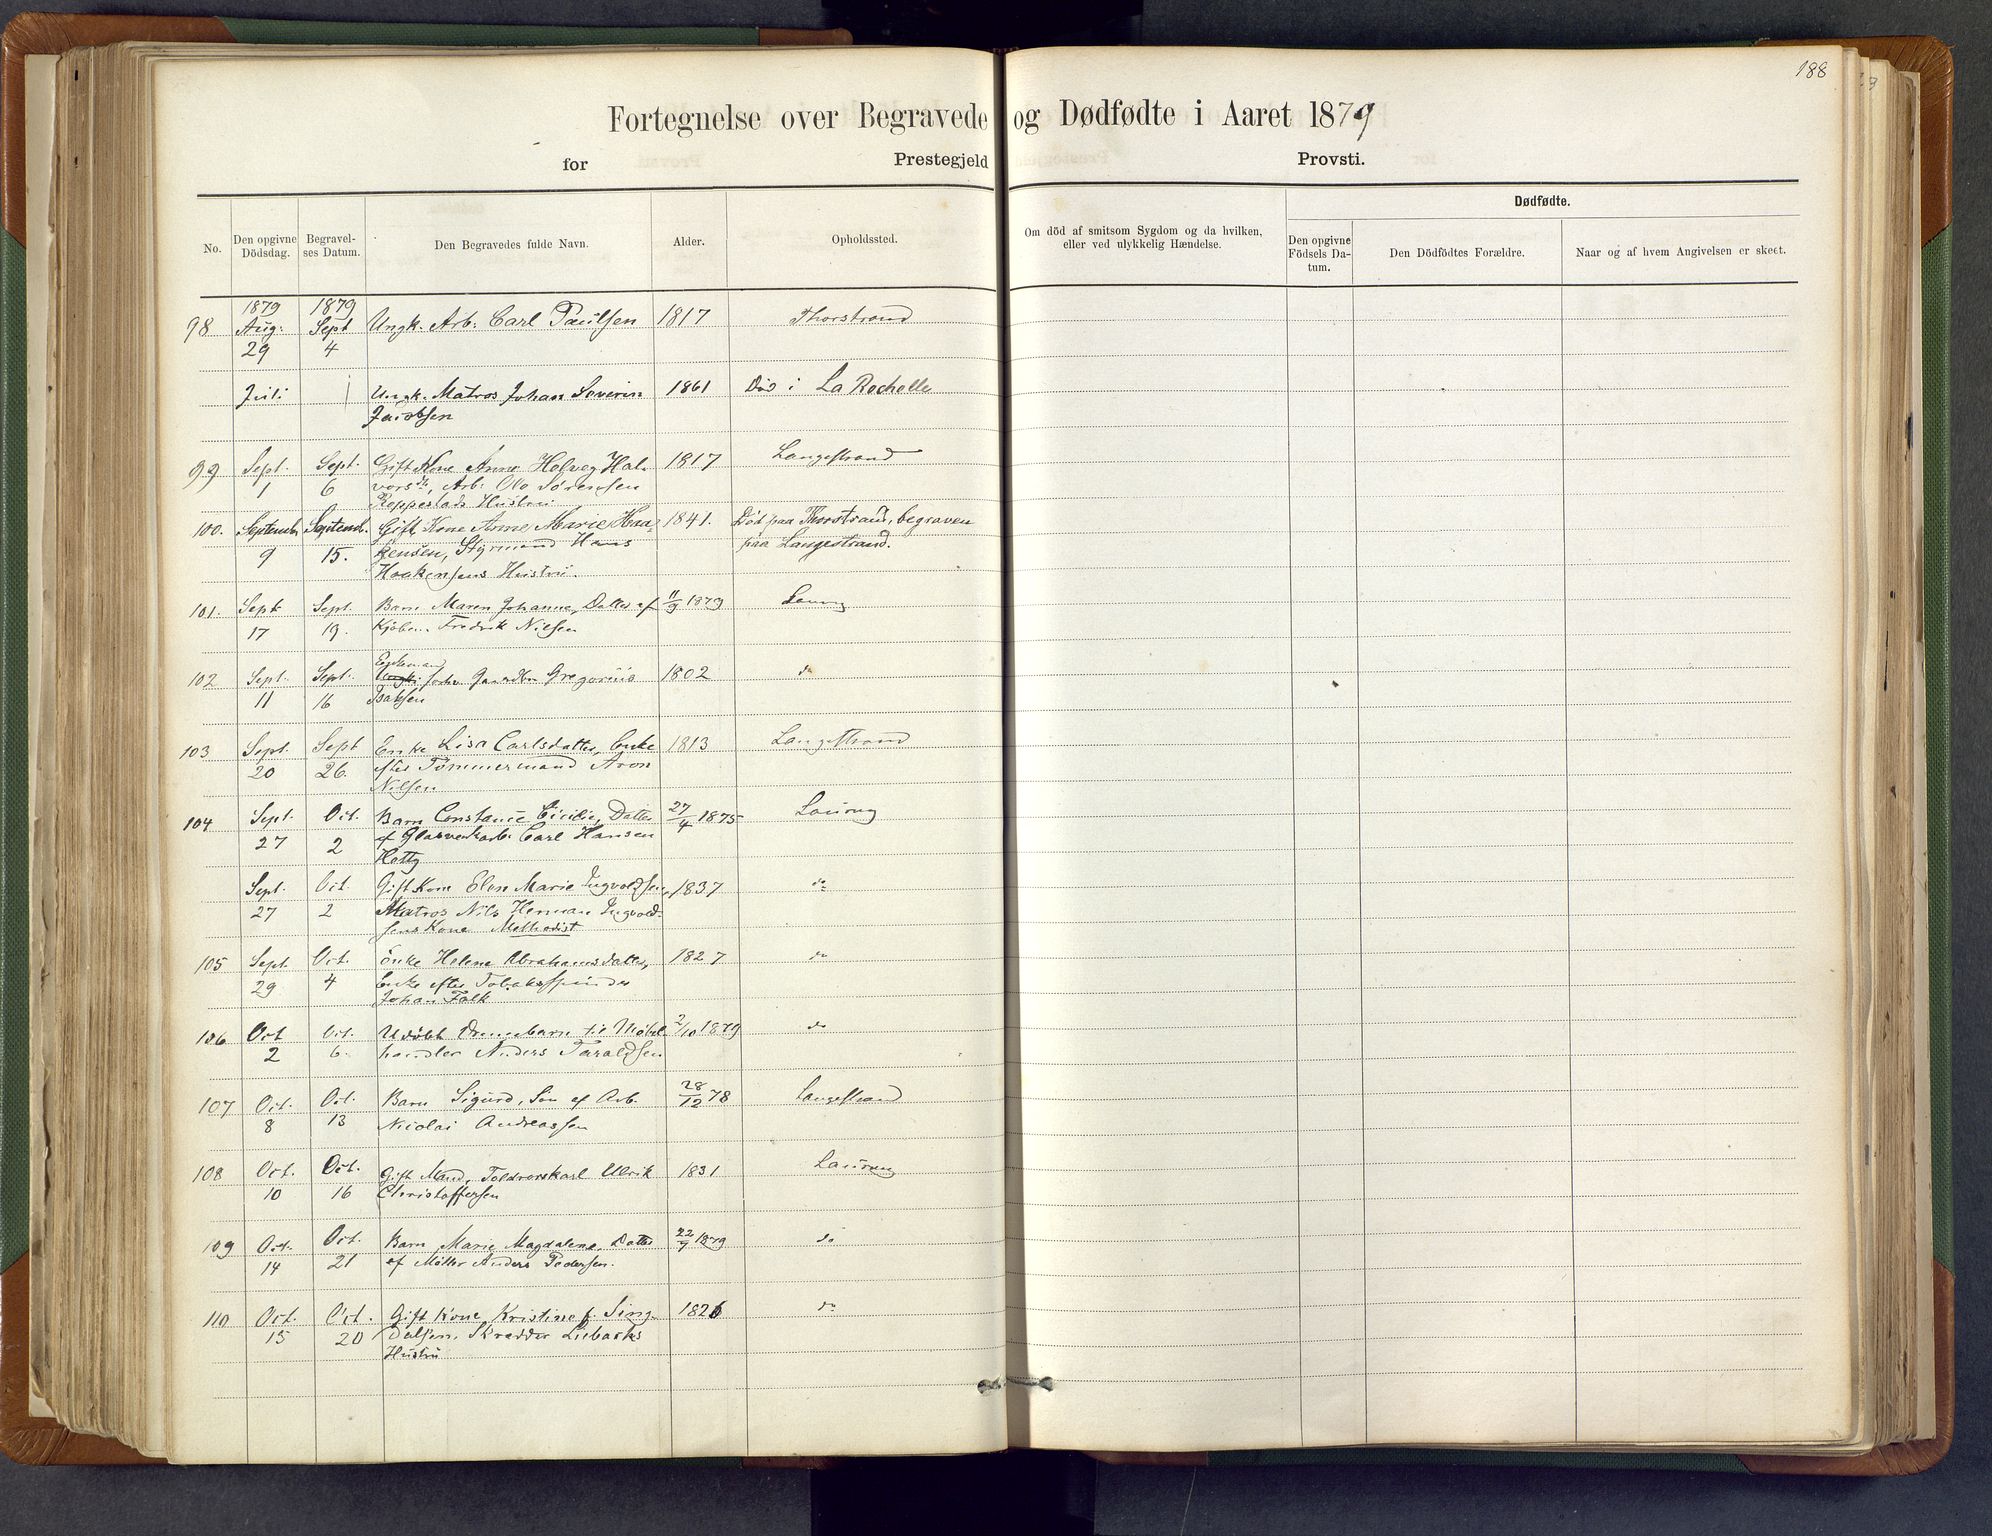 188
Fortegnelse over Begravede og Dødfødte i Aaret 1879
for Prestegjeld Provsti.
No. Den opgivne Dödsdag. Begravelses Datum. Den Begravedes fulde Navn. Alder. Opholdssted. Om död af smitsom Sygdom og da hvilken, eller ved ulykkelig Hændelse. Dødfødte.
Den opgivne Födsels Datum. Den Dödfödtes Forældre. Naar og af hvem Angivelsen er skeet.
1879 1879
98 Aug: Sept Ungk. Arb: Carl Paulsen 1817 Thorstrand
29 4
Juli Ungk. Matros Johan Severin 1861 Død i La Rochelle
Jacobsen
99 Sept. Sept. Gift Kone Anne Helveg Hal- 1817 Langestrand
1 6 vorsdtr, Arb: Ole Sörensen
Reppestads Hustru
100. Septemb. Septemb. Gift Kone Anne Marie Haa- 1841. Död paa Thorstrand, begraven
9 15. kensen, Styrmand Hans paa Langestrand.
Haakensens Hustru.
101. Sept Sept. Barn Maren Johanne, Datter af 11/9 1879 Laurvig
17 19. Kjöbm. Fredrik Nilsen
Enkemand
102 Sept. Sept. Gregorius 1802 do
11 16 Isaksen
103 Sept. Sept Enke Lisa Carlsdatter, Enke 1813 Langestrand
20 26. efter Tömmermand Aron
Nilsen
104 Sept. Oct. Barn Constance Cicilie, Datter 27/4 1875 Laurvig
27 2 af Glasværkarb. Carl Hansen
Hotty
Sept. Oct. Gift Kone Elen Marie Ingvoldsen, 1837 do
27 2 Matros Nils Herman Ingvold-
sens Kone Methodist
105 Sept. Oct. Enke Helene Abrahamsdatter, 1827 do
29 4 Enke efter Tobaksspinder
Johan Falk
106 Oct Oct. Udöbt Drengebarn til Möbel- 2/10 1879 do
2 6. handler Anders Taraldsen
107 Oct. Oct. Barn Sigurd, Sön af Arb. 28/12 78 Langestrand
8 13 Nicolai Andreassen
108 Oct. Oct. Gift Mand, Toldrorskarl Ulrik 1831 Laurvig
10 16 Christoffersen
109 Oct. Oct. Barn Marie Magdalene, Datter 22/9 1879 do
14 21 af Möller Anders Pedersen.
110 Oct. Oct. Gift Kone Kristine f. Sing- 1826 do
15 20 Dalsen, Skrædder Liebacks
Hustru